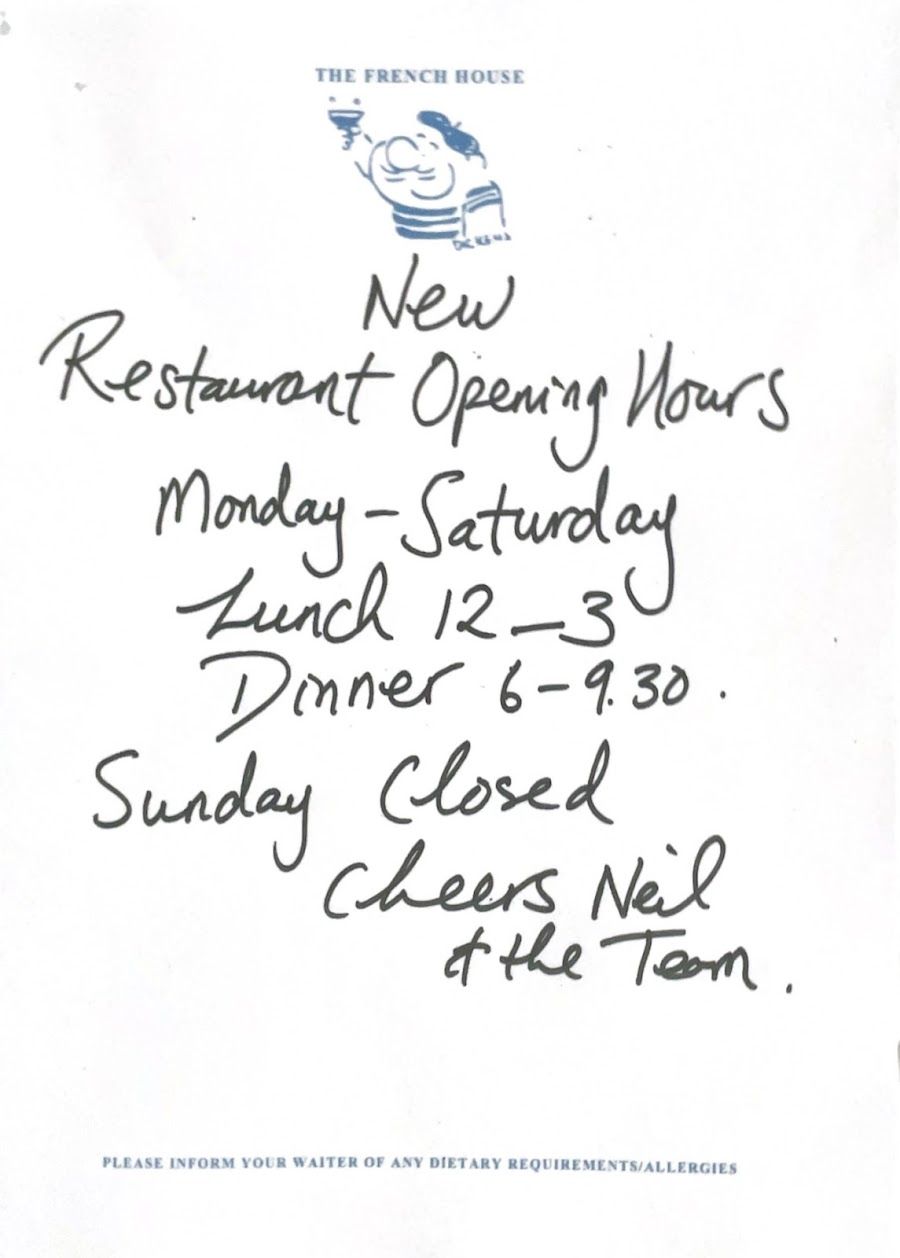 THE FRENCH HOUSE
New
Restaurant Opening Hours
Monday – Saturday
Lunch 12 – 3
Dinner 6 – 9.30 .
Sunday Closed
Cheers Neil
& the Team .
PLEASE INFORM YOUR WAITER OF ANY DIETARY REQUIREMENTS/ALLERGIES